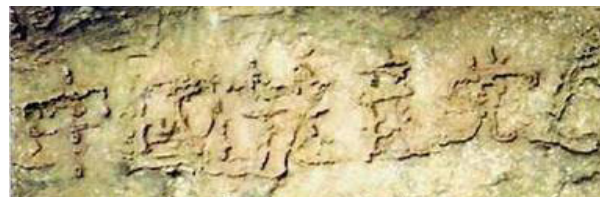 中國共產党亡